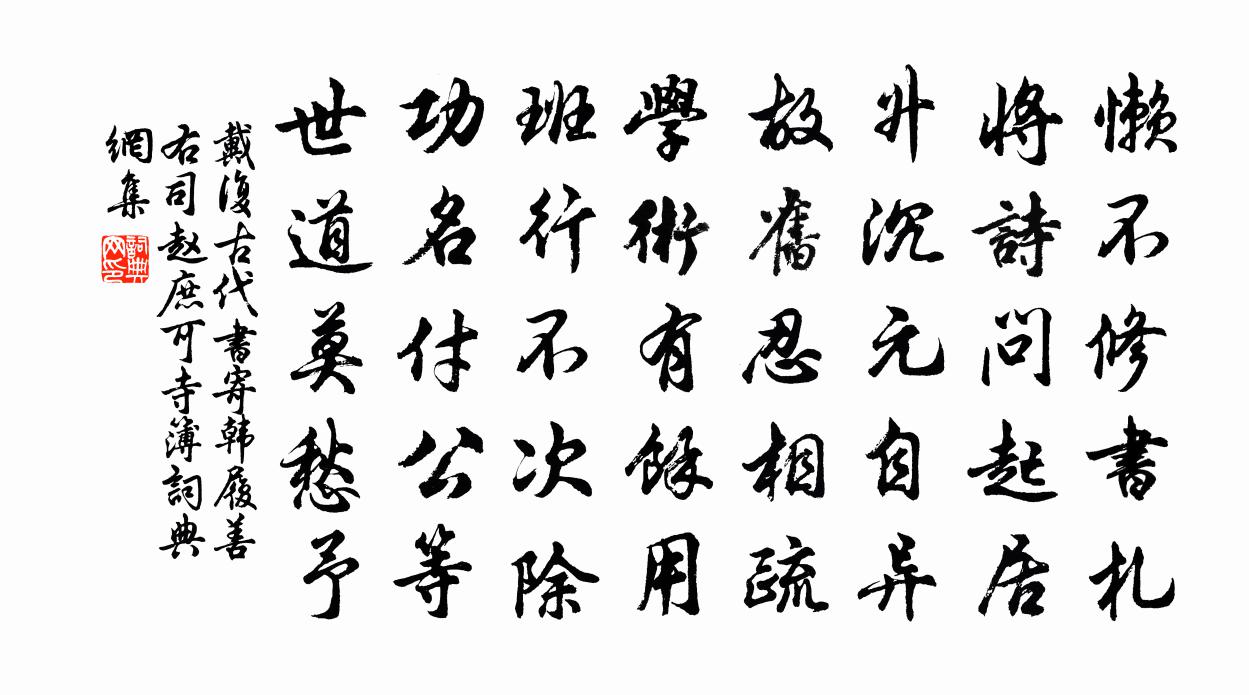 懒不修書札
將詩問起居
升沉元自异
故舊忍相疏
學術有餘用
班行不次除
功名付公等
世道莫愁予
戴復古代書寄韩履善
右司赵庶可寺簿詞典
網集
詞典网印